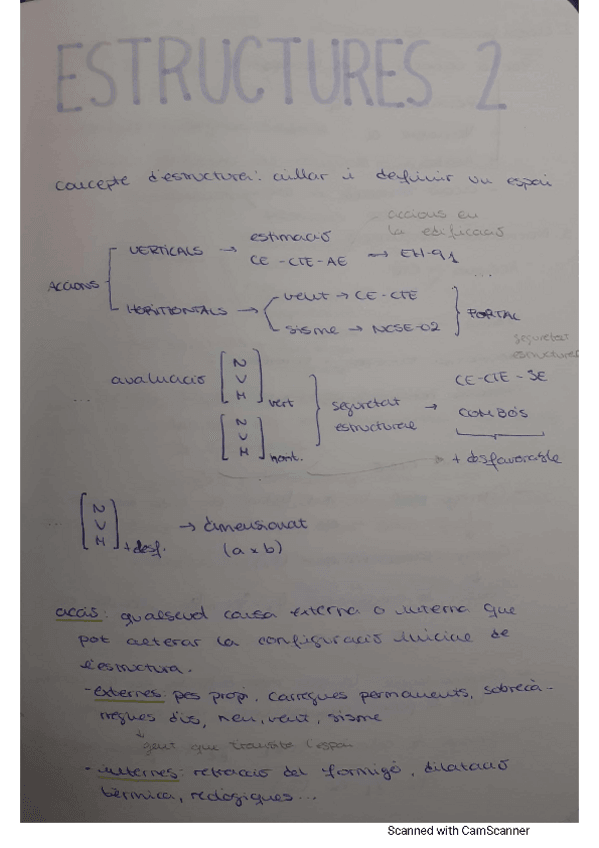 ESTRUCTURES 2
concepte d'estructura: aïllar i definir un espai
accions en
la edificació
estimació
VERTICALS → CE-CTE-AE → EH-91
...
ACCIONS
HORITZONTALS → vent → CE-CTE
sisme → NCSE-02
PORTAL
seguretat
estructural
avaluació [N V M] vert
[N V M] horit.
seguretat
estructural → CE-CTE-SE
COMBOIS
+ desfavorable
[N V M] +desf. → dimensionat
(a x b)
acció: qualsevol causa externa o interna que
pot alterar la configuració inicial de
l'estructura.
- externes: pes propi, càrregues permanents, sobrecà-
rregues d'ús, neu, vent, sisme
↓ gent que transita l'espai
- internes: retracció del formigó, dilatació
tèrmica, reològiques...
Scanned with CamScanner